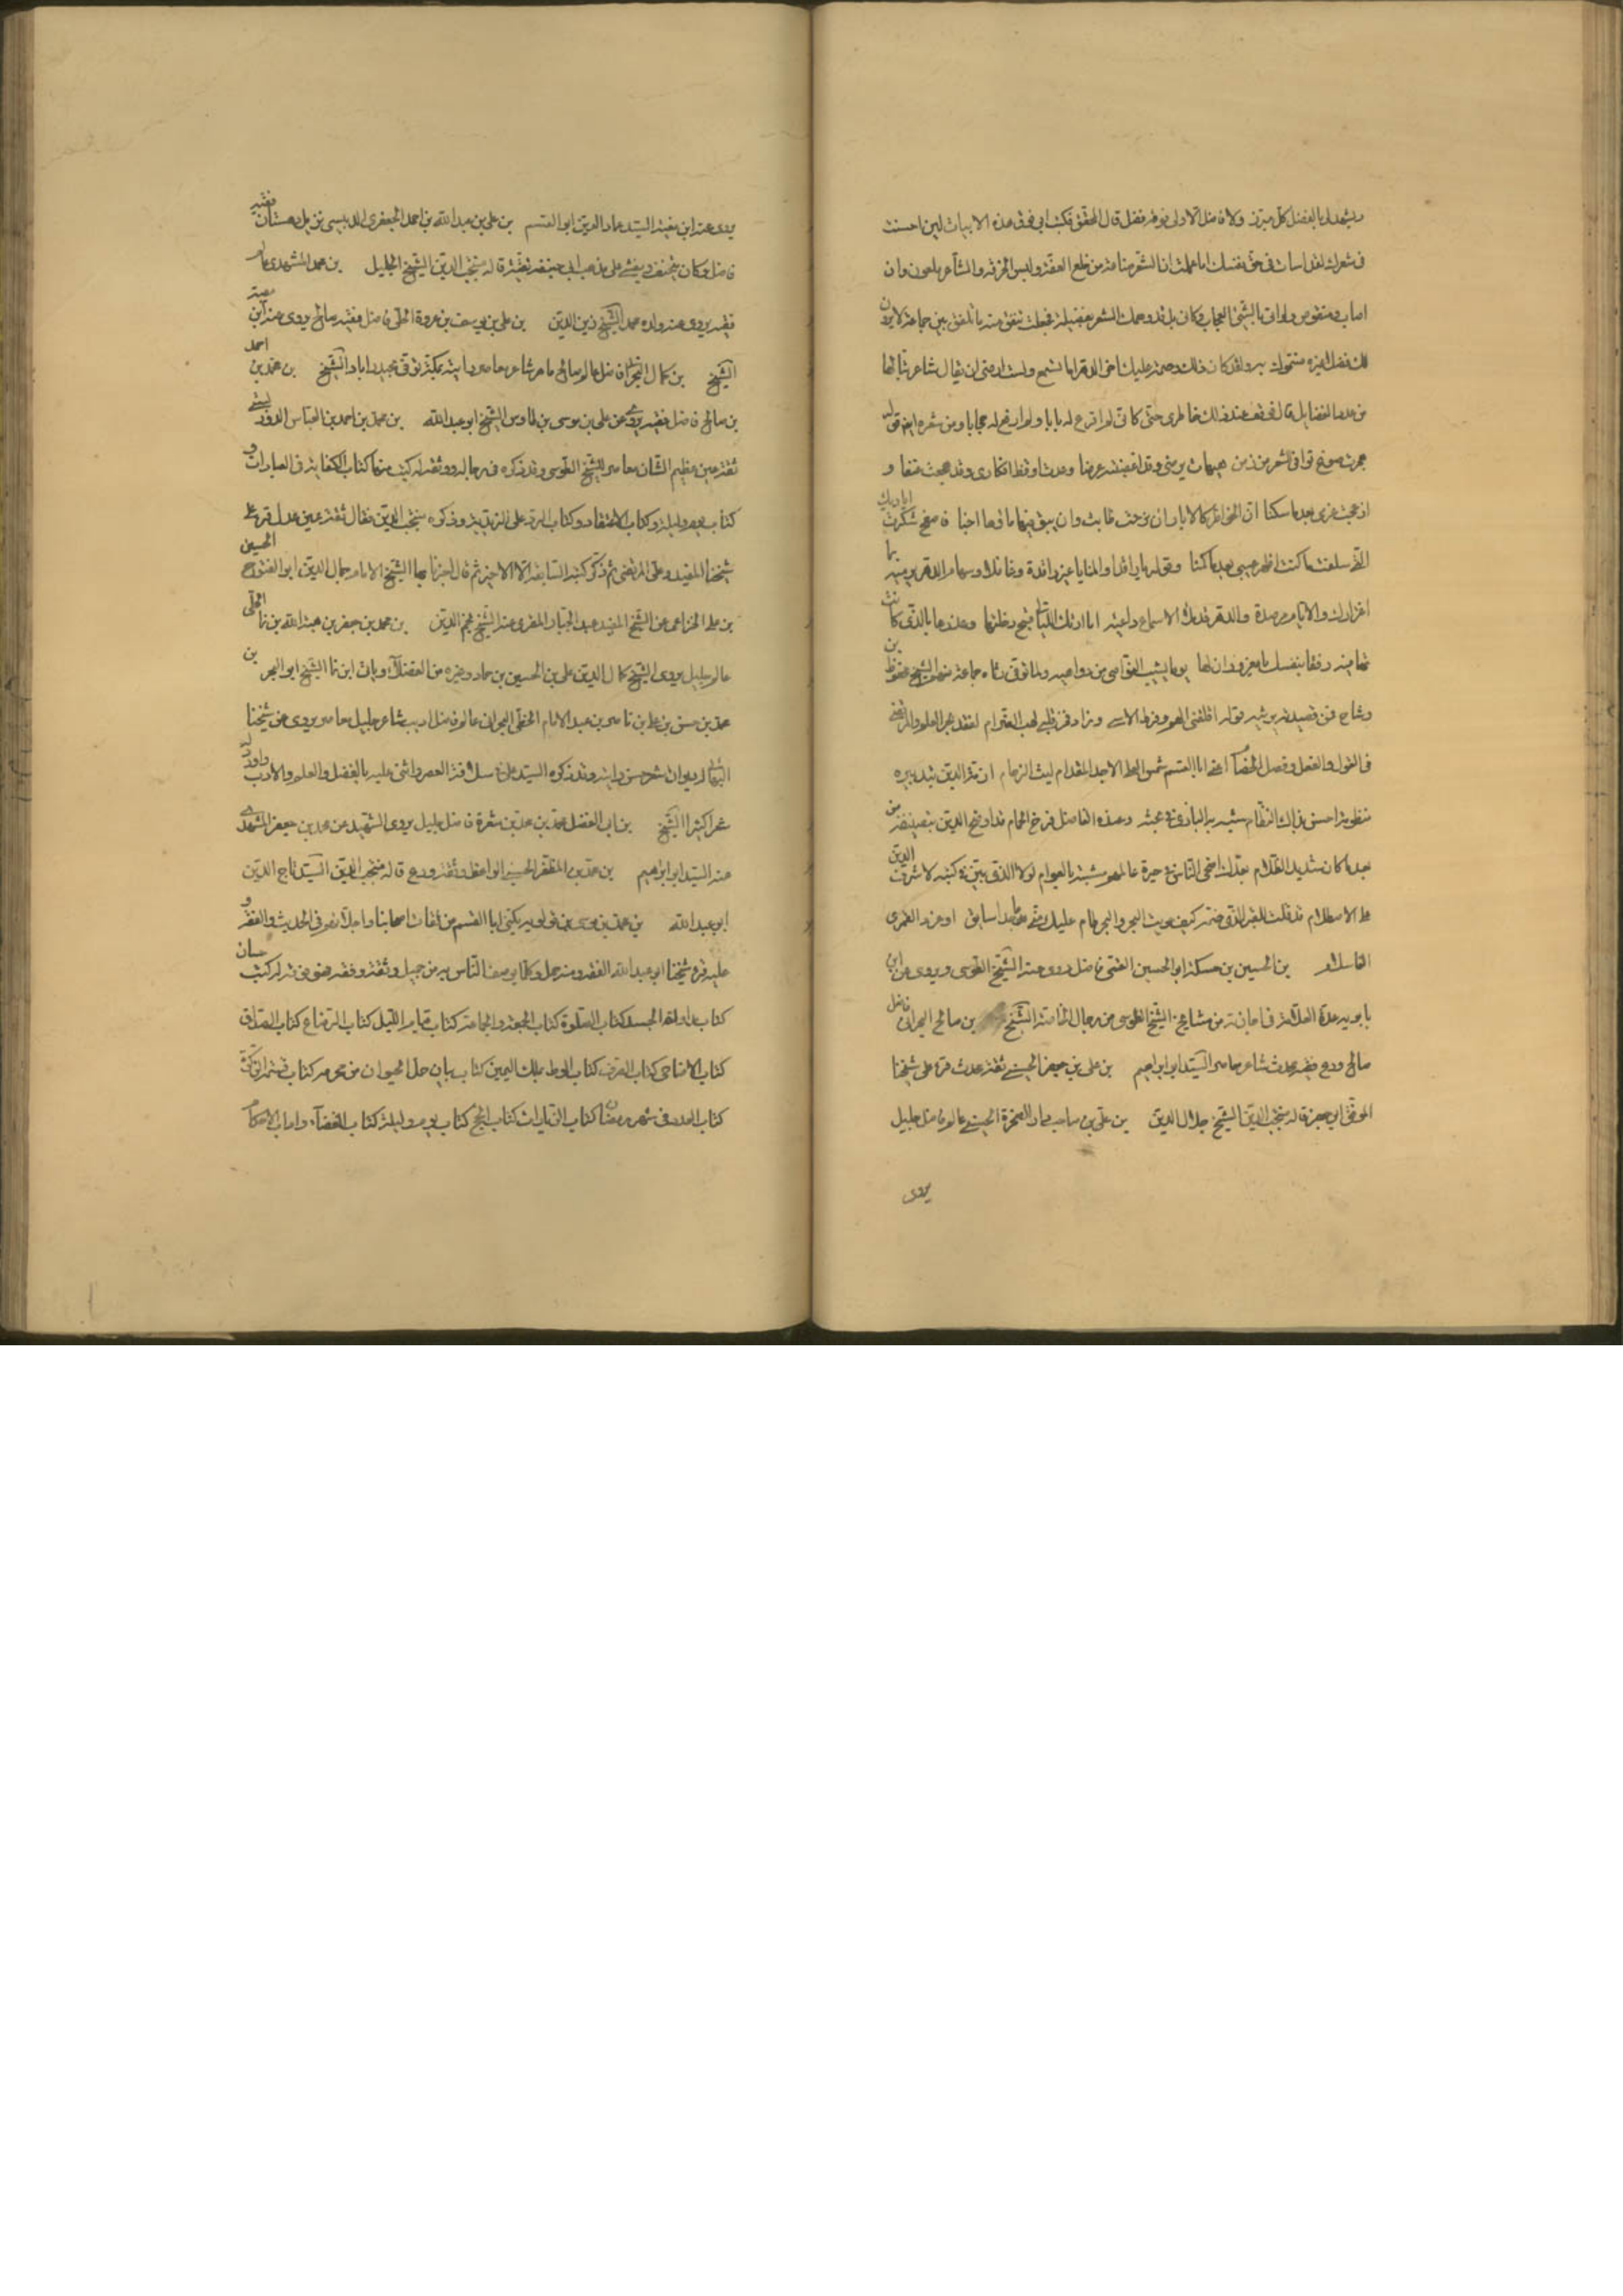 ويشهد له بالفضل كل مبرز ولا فاضل الا ولي فوقه فضل قال المحقق فكتب ابي فوق هذه الابيات لئن احسنت
في شعرك لقد اسأت في حق نفسك اما علمت ان الشعر صناعة من خلع العفة ولبس الحرفة والشاعر ملعون وان
اصاب ومنقوص وان اتى بالشيء العجاب وكاني بك قد دهمك الشعر بفضيلته فجعلت تنفق منه ما تلفق بين جماعة لا يرون
لك فضلا غيره فسموك به ولقد كان ذلك وصمة عليك آخر الدهر اما تسمع ولست ارضى ان يقال شاعر تبا لها
من عدد الفضايل قال فوقف عند ذلك خاطري حتى كاني لم اقرع له بابا ولم ارفع له حجابا ومن شعره ايضا قوله
هجرت صوغ قوافي الشعر من زمن هيهات يرضى وقد اغضبته زمنا وعدت اوقظ افكاري وقد هجعت عنفا و
ازعجت عزمي بعد ما سكنا ان الخواطر كالابار ان نزحت طابت وان يبق فيها ماؤها اجنا فاصفح شكرت اياديك
التي سلفت ما كنت اظهر عيبي بعد ما كمنا وقوله يا راقدا والمنايا غير راقدة وغافلا وسهام الدهر ترميه بما
اغترارك والايام مرصدة والدهر قد ملأ الاسماع داعيه اما ارتك الليالي قبح دخلتها وغدرها بالذي كانت
تصافيه رفقا بنفسك يا مغرور ان لها يوما يشيب النواصي من دواهيه ولما توفي رثاه جماعة منهم الشيخ محفوظ بن
وشاح فمن قصيدته يرثيه قوله اقلقني الهم وفرط الاسى وزاد في قلبي لهيب الضرام لفقد بحر العلم والمرتضى
في القول والفعل وفصل الخصام اعني ابا القاسم شمس العلا الماجد المقدام ليث الزحام ازمة الدين بتدبيره
منظومة احسن بذاك النظام شبه به البازي في بحثه وعنده الفاضل فرخ الحمام قد اوضح الدين بتصنيفه من
بعد ما كان شديد الظلام بعدك اضحى الناس في حيرة عالمهم مشتبه بالعوام لولا الذي بين في كتبه لاشرف الدين
على الاصطلام قد قلت للقبر الذي ضمه كيف حويت البحر والبحر طام عليك مني ما حدا سايق او غرد القمري
الف سلام بن الحسين بن حسكة ابو الحسين القمي فاضل روى عنه الشيخ الطوسي ويروي عن ابن
بابويه عده العلامة في اجازته من مشايخ الشيخ الطوسي من رجال الخاصة الشيخ بن صالح البحراني فاضل
صالح ورع فقيه محدث شاعر معاصر السيد ابو ابراهيم بن علي بن جعفر الحسيني ثقة محدث قرأ على شيخنا
الموفق ابي جعفر قاله منتجب الدين الشيخ جلال الدين بن علي بن صاحب دار الصخرة الحسيني عالم فاضل جليل
يروي
يروي عنه ابن معية السيد عماد الدين ابو القسم بن علي بن عبد الله بن احمد الجعفري الدبيسي نزيل دهستان فقيه
فاضل وكان يتحنف ويفتي على مذهب ابي حنيفة تقية قاله منتجب الدين الشيخ الجليل بن محمد المشهدي عالم
فقيه يروي عنه ولده محمد الشيخ زين الدين بن علي بن يوسف بن عروة الحلي فاضل فقيه صالح يروي عنه ابن معية
الشيخ بن كمال البحراني فاضل عالم صالح ماهر شاعر معاصر رايته بمكة توفي بحيدراباد الشيخ بن محمد بن احمد
بن صالح فاضل فقيه يروي عن علي بن موسى بن طاوس الشيخ ابو عبد الله بن محمد بن احمد بن العباس الدوريستي
ثقة عين عظيم الشان معاصر للشيخ الطوسي وقد ذكره في رجاله ووثقه له كتب منها كتاب الكفاية في العبادات و
كتاب يوم وليلة وكتاب الاعتقاد وكتاب الرد على الزيدية وذكره منتجب الدين فقال ثقة عين عدل قرأ على
شيخنا المفيد وعلى المرتضى ثم ذكر كتبه السابقة الا الاخير ثم قال اخبرنا بها الشيخ الامام جمال الدين ابو الفتوح الحسين
بن علي الخزاعي عن الشيخ المفيد عبد الجبار المقري عنه الشيخ نجم الدين بن محمد بن جعفر بن هبة الله بن نما الحلي
عالم جليل يروي الشيخ كمال الدين علي بن الحسين بن حماد وغيره من الفضلاء وياتي ابن نما الشيخ ابو البحر بن
محمد بن حسن بن علي بن ناصر بن عبد الامام الخطي البحراني عالم فاضل اديب شاعر جليل معاصر يروي عن شيخنا
البهائي له ديوان شعر حسن رايته وقد ذكره السيد علي في سلافة العصر واثنى عليه بالفضل والعلم والادب واورد له
شعرا كثيرا الشيخ بن ابي الفضل محمد بن محمد بن شعرة فاضل جليل يروي الشهيد عن محمد بن جعفر المشهدي
عنه السيد ابو ابراهيم بن محمد بن المظفر الحسيني الواعظ ثقة ورع قاله منتجب الدين السيد تاج الدين
ابو عبد الله بن محمد بن موسى بن قولويه يكنى ابا القسم من ثقات اصحابنا واجلائهم في الحديث والفقه و
عليه قرأ شيخنا ابو عبد الله الفقه ومنه حمل وكلما يوصف الناس به من جميل وثقة وفقه فهو فوقه له كتب حسان
كتاب مداواة الجسد كتاب الصلوة كتاب الجمعة والجماعة كتاب قيام الليل كتاب الرضاع كتاب الصداق
كتاب الاضاحي كتاب الصرف كتاب الوطي بملك اليمين كتاب بيان حل الحيوان من محرمه كتاب قسمة الزكوة
كتاب العدد في شهر رمضان كتاب الزيارات كتاب الحج كتاب يوم وليلة كتاب القضاء واداب الاحكام